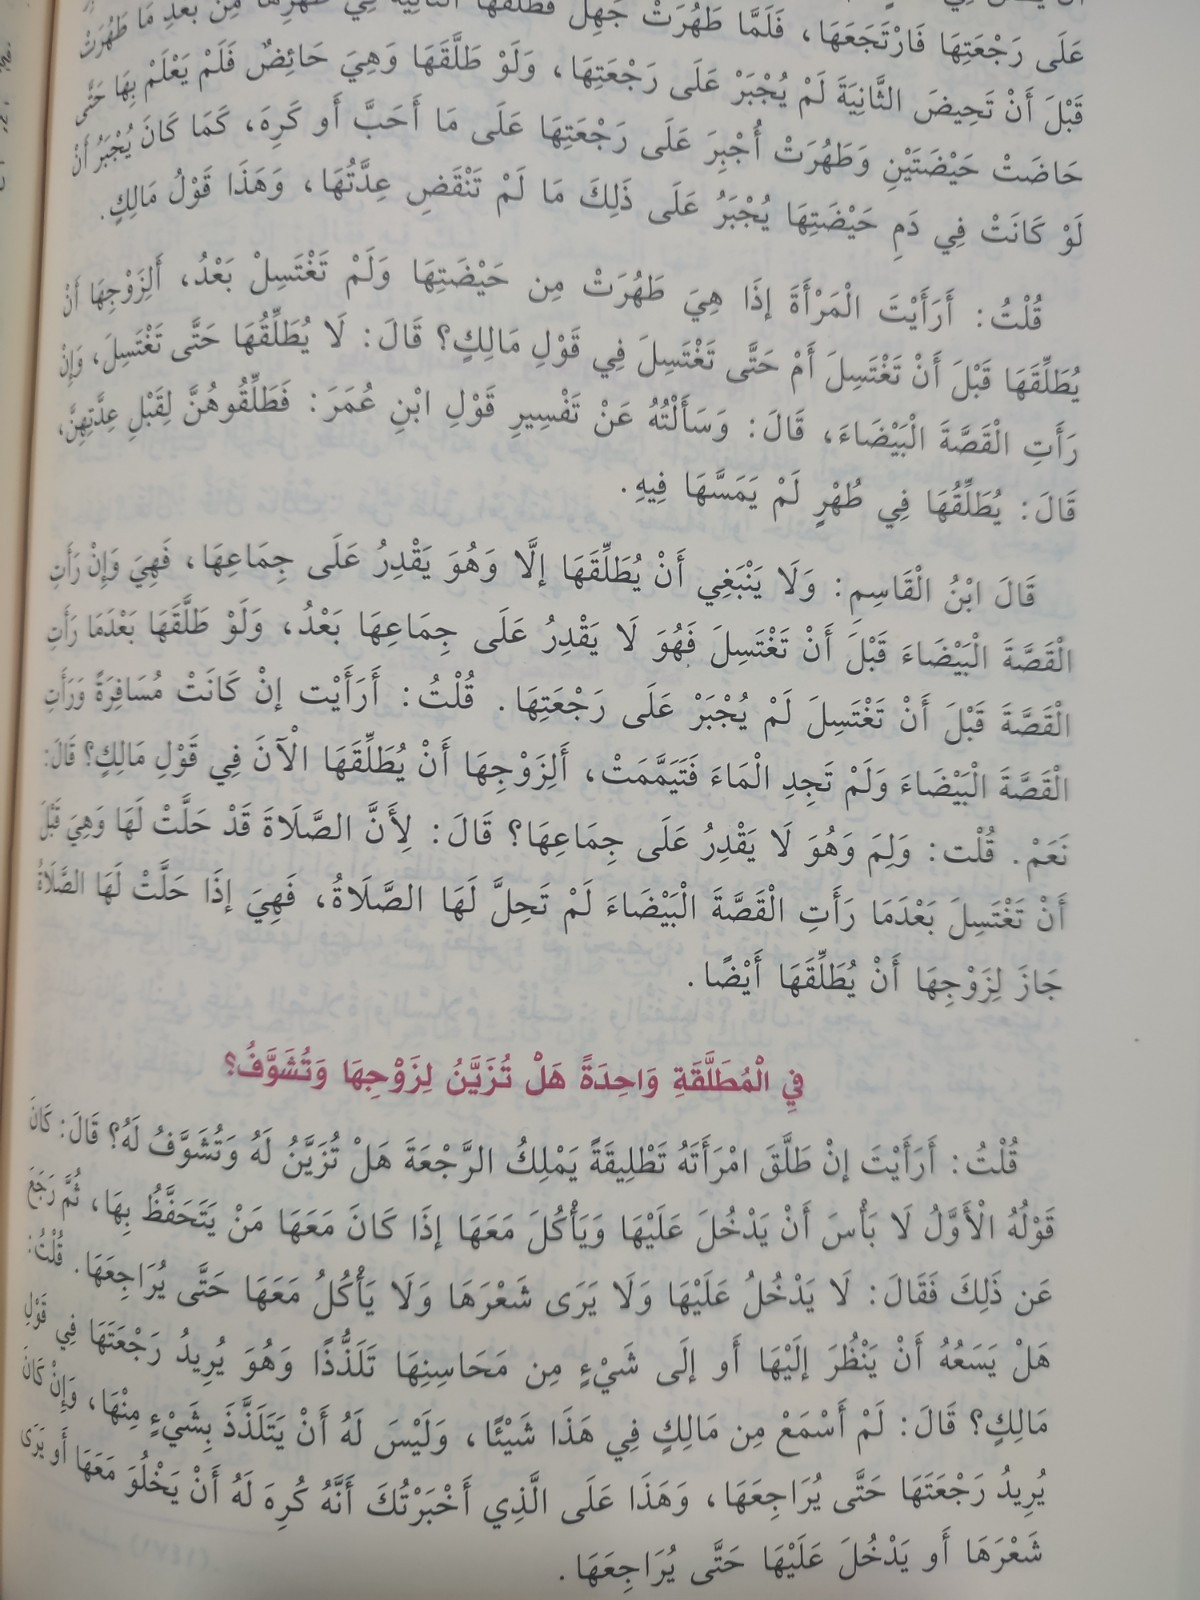 عَلَى رَجْعَتِهَا فَارْتَجَعَهَا، فَلَمَّا طَهُرَتْ جَهِلَ فَطَلَّقَهَا الثَّانِيَةَ فِي طُهْرِهَا مِنْ بَعْدِ مَا طَهُرَتْ
قَبْلَ أَنْ تَحِيضَ الثَّانِيَةَ لَمْ يُجْبَرْ عَلَى رَجْعَتِهَا، وَلَوْ طَلَّقَهَا وَهِيَ حَائِضٌ فَلَمْ يَعْلَمْ بِهَا حَتَّى
حَاضَتْ حَيْضَتَيْنِ وَطَهُرَتْ أُجْبِرَ عَلَى رَجْعَتِهَا عَلَى مَا أَحَبَّ أَو كَرِهَ، كَمَا كَانَ يُجْبَرُ أَنْ
لَوْ كَانَتْ فِي دَمِ حَيْضَتِهَا يُجْبَرُ عَلَى ذَلِكَ مَا لَمْ تَنْقَضِ عِدَّتُهَا، وَهَذَا قَوْلُ مَالِكٍ.
قُلْتُ: أَرَأَيْتَ الْمَرْأَةَ إذَا هِيَ طَهُرَتْ مِن حَيْضَتِهَا وَلَمْ تَغْتَسِلْ بَعْدُ، أَلِزَوْجِهَا أَنْ
يُطَلِّقَهَا قَبْلَ أَنْ تَغْتَسِلَ أَمْ حَتَّى تَغْتَسِلَ فِي قَوْلِ مَالِكٍ؟ قَالَ: لَا يُطَلِّقُهَا حَتَّى تَغْتَسِلَ، وَإِنْ
رَأَتِ الْقَصَّةَ الْبَيْضَاءَ، قَالَ: وَسَأَلْتُهُ عَنْ تَفْسِيرِ قَوْلِ ابْنِ عُمَرَ: فَطَلِّقُوهُنَّ لِقَبْلِ عِدَّتِهِنَّ،
قَالَ: يُطَلِّقُهَا فِي طُهْرٍ لَمْ يَمَسَّهَا فِيهِ.
قَالَ ابْنُ الْقَاسِمِ: وَلَا يَنْبَغِي أَنْ يُطَلِّقَهَا إلَّا وَهُوَ يَقْدِرُ عَلَى جِمَاعِهَا، فَهِيَ وَإِنْ رَأَتِ
الْقَصَّةَ الْبَيْضَاءَ قَبْلَ أَنْ تَغْتَسِلَ فَهُوَ لَا يَقْدِرُ عَلَى جِمَاعِهَا بَعْدُ، وَلَوْ طَلَّقَهَا بَعْدَمَا رَأَتِ
الْقَصَّةَ قَبْلَ أَنْ تَغْتَسِلَ لَمْ يُجْبَرْ عَلَى رَجْعَتِهَا. قُلْتُ: أَرَأَيْت إنْ كَانَتْ مُسَافِرَةً وَرَأَتِ
الْقَصَّةَ الْبَيْضَاءَ وَلَمْ تَجِدِ الْمَاءَ فَتَيَمَّمَتْ، أَلِزَوْجِهَا أَنْ يُطَلِّقَهَا الْآنَ فِي قَوْلِ مَالِكٍ؟ قَالَ:
نَعَمْ. قُلْت: وَلِمَ وَهُوَ لَا يَقْدِرُ عَلَى جِمَاعِهَا؟ قَالَ: لِأَنَّ الصَّلَاةَ قَدْ حَلَّتْ لَهَا وَهِيَ قَبْلَ
أَنْ تَغْتَسِلَ بَعْدَمَا رَأَتِ الْقَصَّةَ الْبَيْضَاءَ لَمْ تَحِلَّ لَهَا الصَّلَاةُ، فَهِيَ إذَا حَلَّتْ لَهَا الصَّلَاةُ
جَازَ لِزَوْجِهَا أَنْ يُطَلِّقَهَا أَيْضًا.
فِي الْمُطَلَّقَةِ وَاحِدَةً هَلْ تُزَيَّنُ لِزَوْجِهَا وَتُشَوَّفُ؟
قُلْتُ: أَرَأَيْتَ إنْ طَلَّقَ امْرَأَتَهُ تَطْلِيقَةً يَمْلِكُ الرَّجْعَةَ هَلْ تُزَيَّنُ لَهُ وَتُشَوَّفُ لَهُ؟ قَالَ: كَانَ
قَوْلُهُ الْأَوَّلُ لَا بَأْسَ أَنْ يَدْخُلَ عَلَيْهَا وَيَأْكُلَ مَعَهَا إذَا كَانَ مَعَهَا مَنْ يَتَحَفَّظُ بِهَا، ثُمَّ رَجَعَ
عَن ذَلِكَ فَقَالَ: لَا يَدْخُلُ عَلَيْهَا وَلَا يَرَى شَعْرَهَا وَلَا يَأْكُلُ مَعَهَا حَتَّى يُرَاجِعَهَا. قُلْتُ:
هَلْ يَسَعُهُ أَنْ يَنْظُرَ إلَيْهَا أَو إلَى شَيْءٍ مِن مَحَاسِنِهَا تَلَذُّذًا وَهُوَ يُرِيدُ رَجْعَتَهَا فِي قَوْلِ
مَالِكٍ؟ قَالَ: لَمْ أَسْمَعْ مِن مَالِكٍ فِي هَذَا شَيْئًا، وَلَيْسَ لَهُ أَنْ يَتَلَذَّذَ بِشَيْءٍ مِنْهَا، وَإِنْ كَانَ
يُرِيدُ رَجْعَتَهَا حَتَّى يُرَاجِعَهَا، وَهَذَا عَلَى الَّذِي أَخْبَرْتُكَ أَنَّهُ كُرِهَ لَهُ أَنْ يَخْلُوَ مَعَهَا أَو يَرَى
شَعْرَهَا أَو يَدْخُلَ عَلَيْهَا حَتَّى يُرَاجِعَهَا.